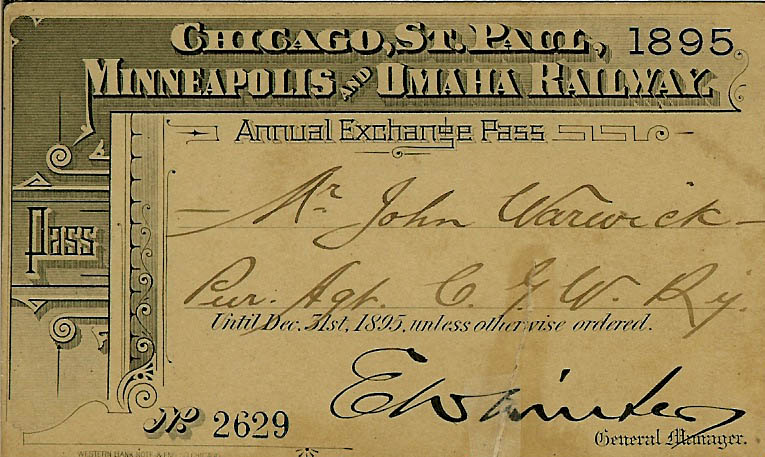 CHICAGO, ST. PAUL, 1895
MINNEAPOLIS AND OMAHA RAILWAY.
Annual Exchange Pass
Mr John Warwick
Pass
Pur. Agt. C. G. W. Ry.
Until Dec. 31st, 1895, unless otherwise ordered.
E W Winter
No 2629
General Manager.
WESTERN BANK NOTE & ENG. CO. CHICAGO